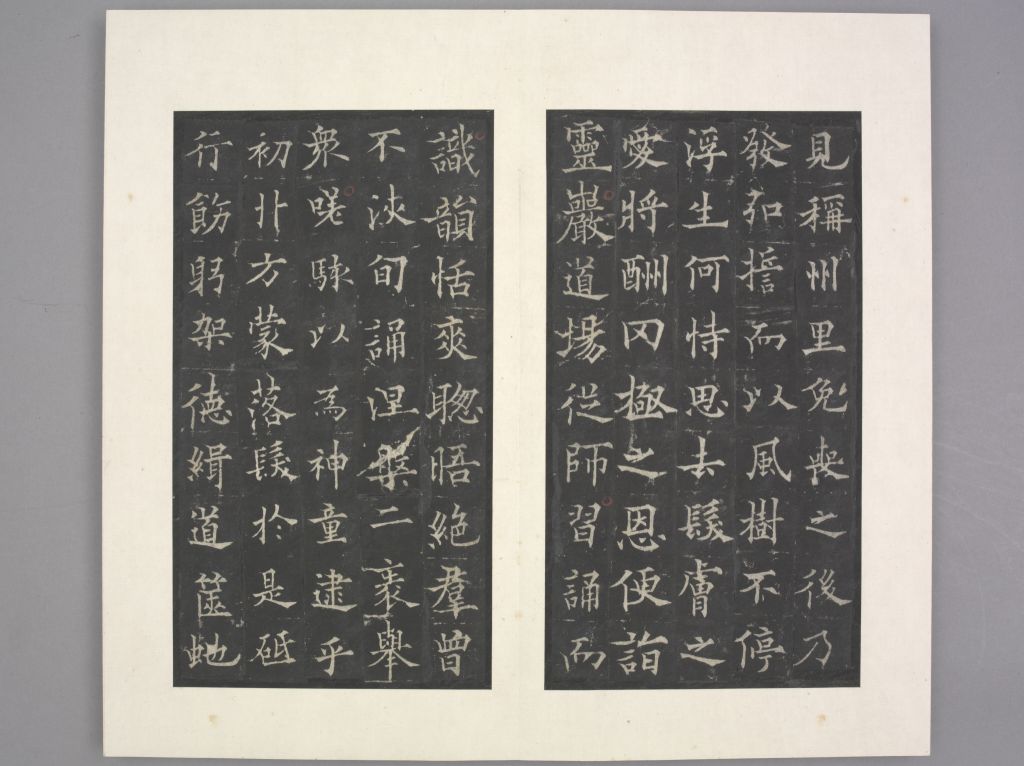 見稱州里免喪之後乃
發弘擔而以風樹不停
浮生何恃思去髮膚之
愛將酬罔極之恩便詣
靈巖道場從師習誦而
識韻恬爽聰晤絶羣曾
不浹旬誦涅槃二袠舉
衆嗟駭以爲神童逮乎
初丱方蒙落髮於是砥
行飭躬架德緝道篋虵